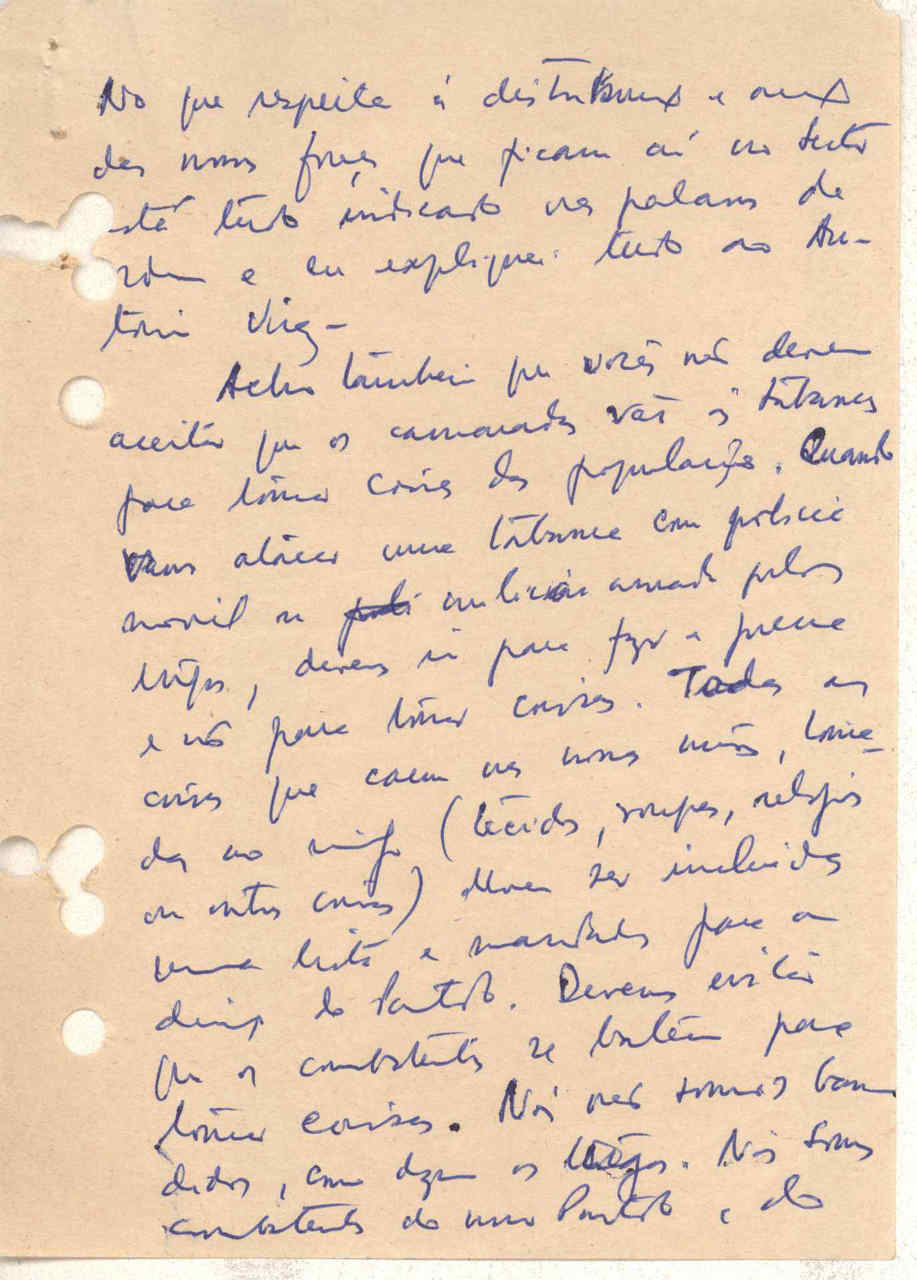 No que respeita à distribuição e acção
das nossas forças que ficam aí no sector
está tudo indicado nas palavras de
ordem e eu expliquei tudo ao An-
tónio
Acho também que vocês não devem
aceitar que os camaradas vão às tabancas
para tomar coisas das populações. Quando
vamos atacar uma tabanca com polícia
movil ou milícia armada pelos
tugas, devemos ir para fazer a guerra
e não para tomar coisas. Todas as
coisas que caem nas nossas mãos, toma-
das ao inimigo (tecidos, roupas, relógios
ou outras coisas) devem ser incluidas
numa lista e mandadas para a
direcção do Partido. Devemos evitar
que os combatentes se batam para
tomar coisas. Nós não somos ban-
didos, como dizem os tugas. Nós somos
combatentes do nosso Partido e do